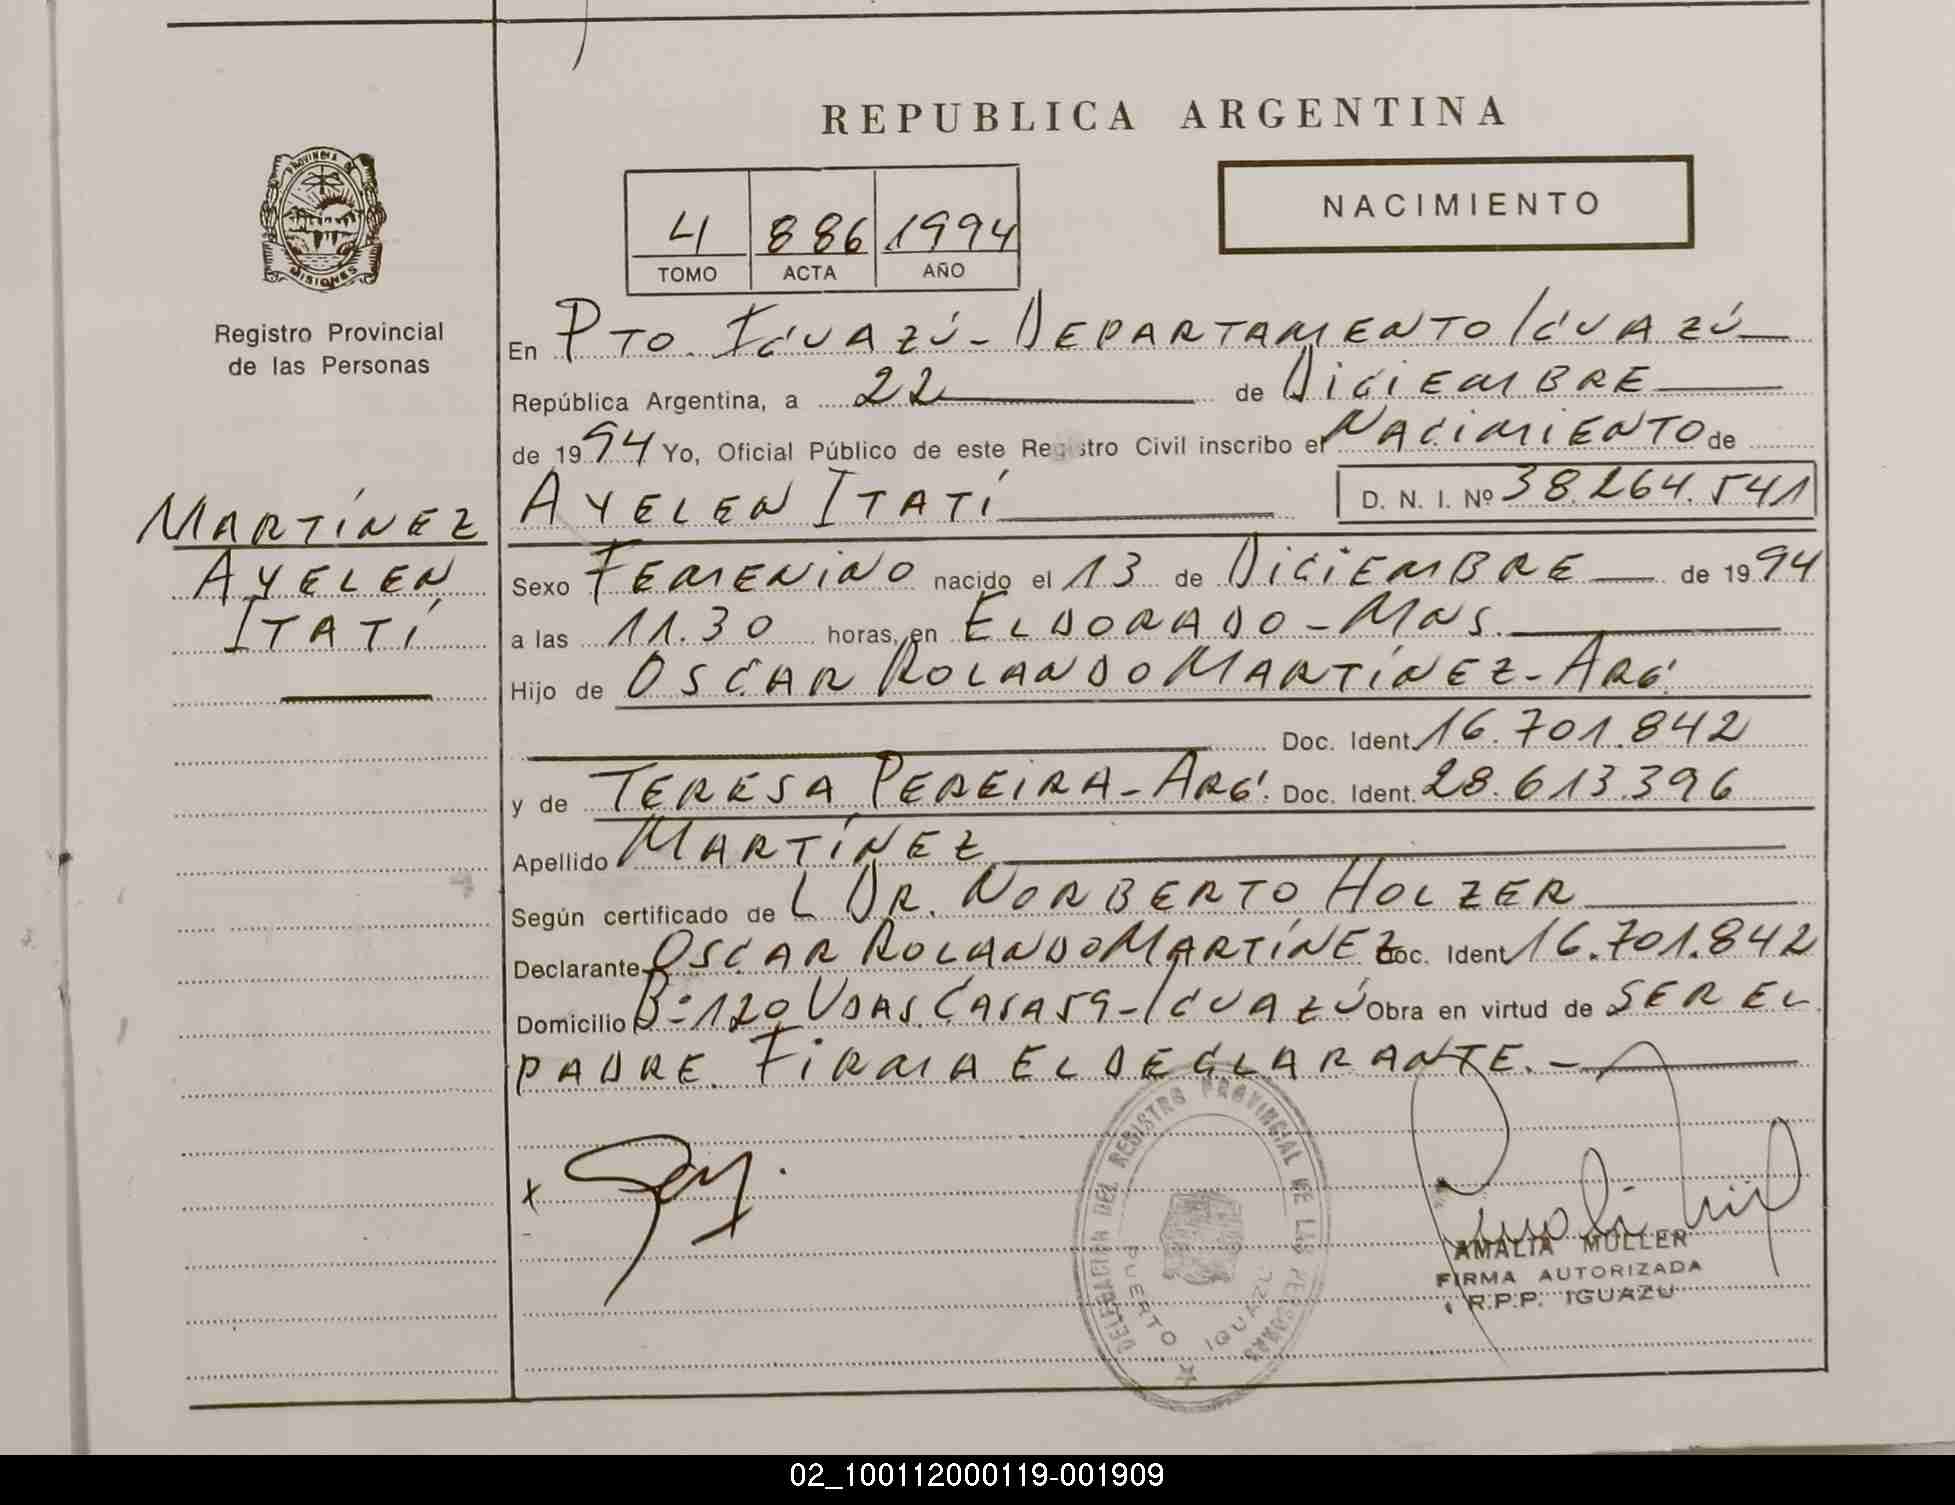 REPUBLICA ARGENTINA
PROVINCIA DE
MISIONES
Registro Provincial
de las Personas
NACIMIENTO
4 886 1994
TOMO ACTA AÑO
En PTO. IGUAZÚ - DEPARTAMENTO IGUAZÚ
República Argentina, a 22 de DICIEMBRE
de 1994 Yo, Oficial Público de este Registro Civil inscribo el NACIMIENTO de
AYELEN ITATÍ D. N. I. Nº 38.264.541
MARTÍNEZ
AYELEN
ITATÍ
Sexo FEMENINO nacido el 13 de DICIEMBRE de 1994
a las 11.30 horas, en ELDORADO - MNS.
Hijo de OSCAR ROLANDO MARTÍNEZ - ARG.
Doc. Ident. 16.701.842
y de TERESA PEREIRA - ARG. Doc. Ident. 28.613.396
Apellido MARTÍNEZ
Según certificado de L DR. NORBERTO HOLZER
Declarante OSCAR ROLANDO MARTÍNEZ Doc. Ident 16.701.842
Domicilio Bº 120 VDAS. CASA 59 - IGUAZÚ Obra en virtud de SER EL
PADRE. FIRMA EL DECLARANTE. -
x
DELEGACION DEL REGISTRO PROVINCIAL DE LAS PERSONAS
PUERTO IGUAZU
AMALIA MULLER
FIRMA AUTORIZADA
R.P.P. IGUAZU
02_100112000119-001909